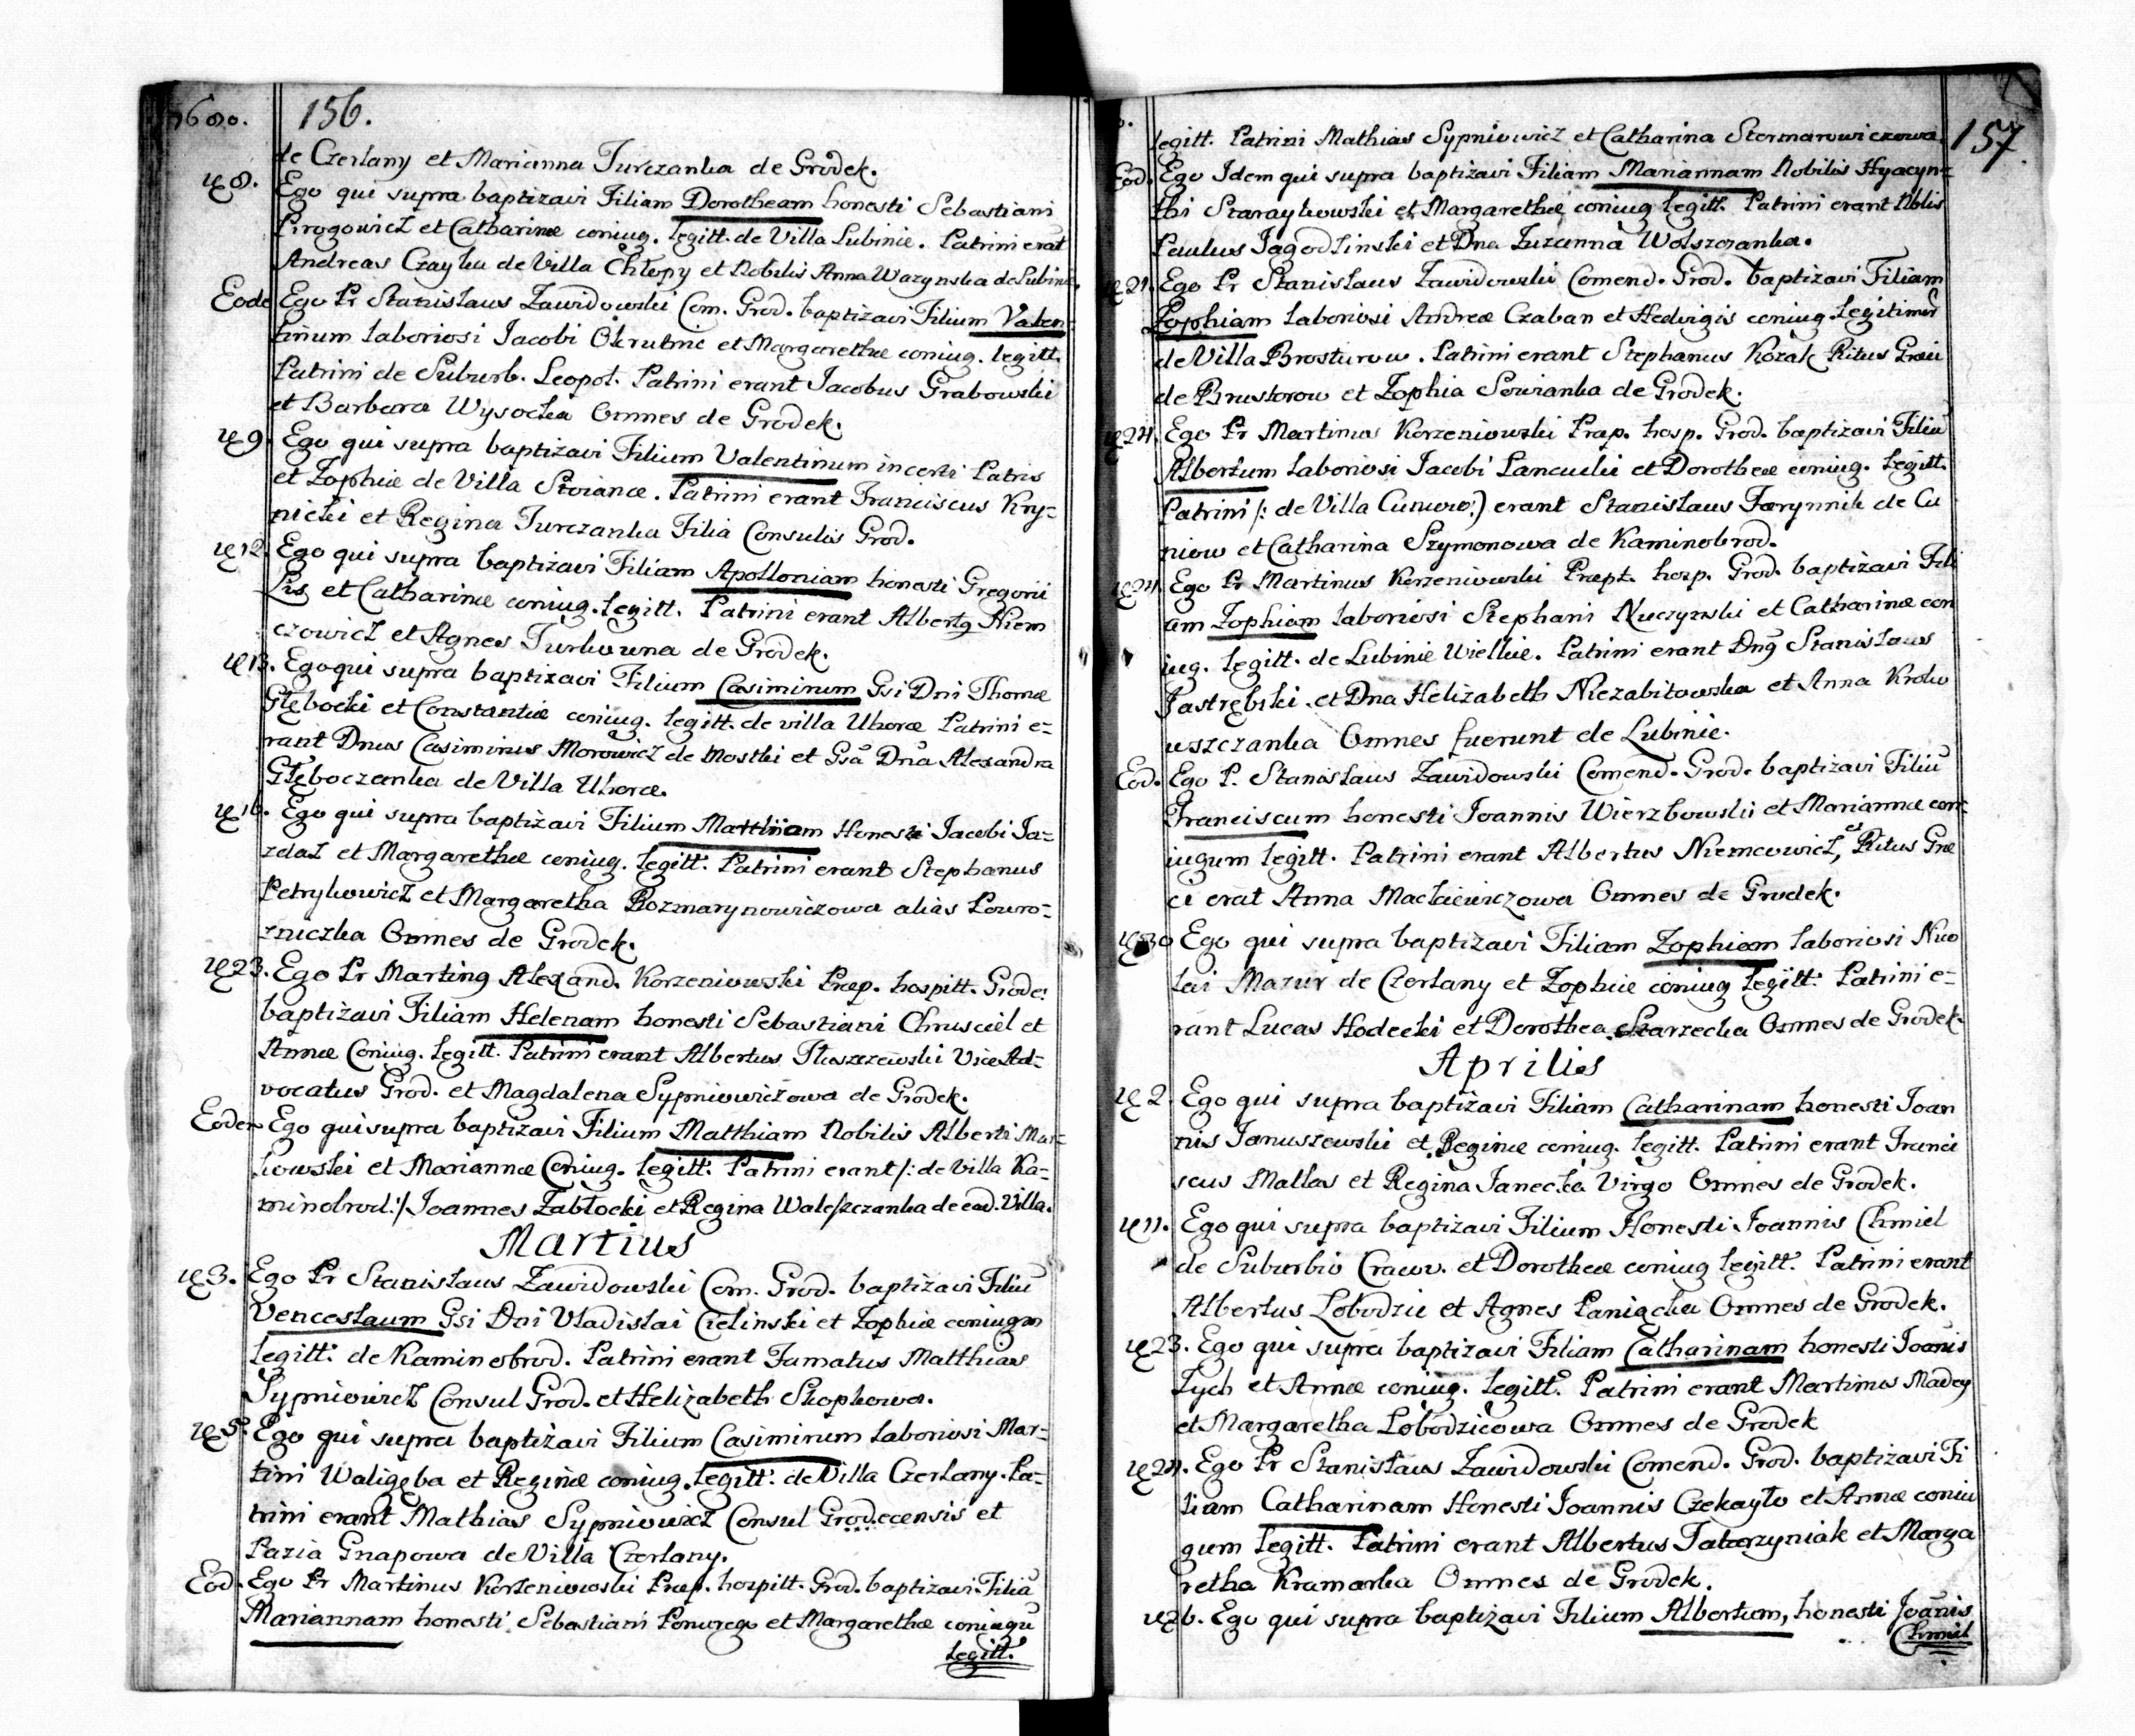 1680. 156.
de Czerlany et Marianna Jurczanka de Grodek.
8. Ego qui supra baptizavi Filiam Dorotheam honesti Sebastiani
Pirogowicz et Catharinæ coniug. legitt. de Villa Lubinie. Patrini erāt
Andreas Czayka de Villa Chłepy et Nobilis Anna Wazynska de Lubinie.
Eode Ego Pr Stanislaus Zawidowski Com. Grod. baptizavi Filium Valen-
tinum laboriosi Jacobi Okrutnie et Margarethæ coniug. legitt.
Patrini de Suburb. Leopol. Patrini erant Jacobus Grabowski
et Barbara Wysocka Omnes de Grodek.
9. Ego qui supra baptizavi Filium Valentinum incerti Patris
et Zophiæ de Villa Stoianæ. Patrini erant Franciscus Kry-
nicki et Regina Jurczanka Filia Consulis Grod.
12. Ego qui supra baptizavi Filiam Apolloniam honesti Gregorii
Lis et Catharinæ coniug. legitt. Patrini erant Albertg Niem
czowicz et Agnes Turkowna de Grodek.
13. Ego qui supra baptizavi Filium Casimirum Gsi Dni Thomæ
Głębocki et Constantiæ coniug. legitt. de villa Uhorce Patrini e-
rant Dnus Casimirus Morowicz de Mostki et Gsa Dna Alexandra
Głęboczanka de Villa Uhorce.
16. Ego qui supra baptizavi Filium Matthiam Honesti Jacobi Ja-
zdaz et Margarethæ coniug. legitt. Patrini erant Stephanus
Petrykowicz et Margaretha Rozmarynowiczowa alias Powro-
zniczka Omnes de Grodek.
23. Ego Pr Marting Alexand. Korzeniowski Præp. hospitt. Grode:
baptizavi Filiam Helenam honesti Sebastiani Chrusciel et
Annæ Coniug. legitt. Patrini erant Albertus Tłuszczewski Vice Ad-
vocatus Grod. et Magdalena Sypniowiczowa de Grodek.
Eodem Ego qui supra baptizavi Filium Matthiam Nobilis Alberti Mar-
kowski et Mariannæ Coniug. legitt. Patrini erant /: de Villa Ka-
minobrod :/ Joannes Zabłocki et Regina Waleszczanka de ead. Villa.
Martius
3. Ego Pr Stanislaus Zawidowski Com. Grod. baptizavi Filiū
Venceslaum Gsi Dni Vladislai Cielinski et Zophiæ coniugm
legitt. de Kaminobrod. Patrini erant Famatus Matthias
Sypniowicz Consul Grod. et Helizabeth Skopkowa.
5. Ego qui supra baptizavi Filium Casimirum laboriosi Mar-
tini Waligęba et Reginæ coniug. legitt. de Villa Czerlany. Pa-
trini erant Mathias Sypniowicz Consul Grodecensis et
Pazia Gnapowa de Villa Czerlany.
Eod. Ego Pr Martinus Korzeniowski Præp. hospitt. Grod. baptizavi Filiā
Mariannam honesti Sebastiani Ponurego et Margarethæ coniugū
legitt.
157
legitt. Patrini Mathias Sypniowicz et Catharina Stermarowiczowa.
Eod. Ego Idem qui supra baptizavi Filiam Mariannam Nobilis Hyacyn-
thi Staraykowski et Margarethæ coniug legitt. Patrini erant Nblis
Paulus Jagodzinski et Dna Zuzanna Wolszczanka.
21. Ego Pr Stanislaus Zawidowski Comend. Grod. baptizavi Filiam
Zophiam laboriosi Andreæ Czaban et Hedvigis coniug. legitimor
de Villa Brosturow. Patrini erant Stephanus Kozak Ritus Græci
de Brustorow et Zophia Sowianka de Grodek.
24. Ego Pr Martinus Korzeniowski Præp. hosp. Grod. baptizavi Filiū
Albertum laboriosi Jacobi Lancucki et Dorotheæ coniug. legitt.
Patrini /: de Villa Cunuow:) erant Stanislaus Farynnik de Cu
niow et Catharina Szymonowa de Kaminobrod.
24. Ego Pr Martinus Korzeniowski Præpt. hosp. Grod. baptizavi Fili
am Zophiam laboriosi Stephani Nuczynski et Catharinæ con
iug. legitt. de Lubinie Wielkie. Patrini erant Dng Stanislaus
Jastrębski et Dna Helizabeth Niezabitowska et Anna Krolo
uszczanka Omnes fuerunt de Lubinie.
Eod. Ego P. Stanislaus Zawidowski Comend. Grod. baptizavi Filiū
Franciscum honesti Joannis Wierzbowski et Mariannæ con-
iugum legitt. Patrini erant Albertus Niemcowicz, et Ritus Græ
ci erat Anna Mackiewiczowa Omnes de Grodek.
30 Ego qui supra baptizavi Filiam Zophiam laboriosi Nico
lai Mazur de Czerlany et Zophiæ coniug legitt: Patrini e-
rant Lucas Hodecki et Dorothea Skarzecka Omnes de Grodek.
Aprilis
2. Ego qui supra baptizavi Filiam Catharinam honesti Joan
nis Januszewski et Reginæ coniug. legitt. Patrini erant Franci
scus Mallas et Regina Janecka Virgo Omnes de Grodek.
11. Ego qui supra baptizavi Filium Honesti Joannis Chmiel
de Suburbio Cracov. et Dorotheæ coniug legitt. Patrini erant
Albertus Lobodzic et Agnes Paniącka Omnes de Grodek.
23. Ego qui supra baptizavi Filiam Catharinam honesti Joānis
Tych et Annæ coniug. legitt. Patrini erant Martinus Madey
et Margaretha Lobodzicowa Omnes de Grodek
24. Ego Pr Stanislaus Zawidowski Comend. Grod. baptizavi Fi
liam Catharinam Honesti Joannis Czekayło et Annæ coniu
gum legitt. Patrini erant Albertus Tatarzyniak et Marga
retha Kramarka Omnes de Grodek.
26. Ego qui supra baptizavi Filium Albertum, honesti Joānis
Chmiel